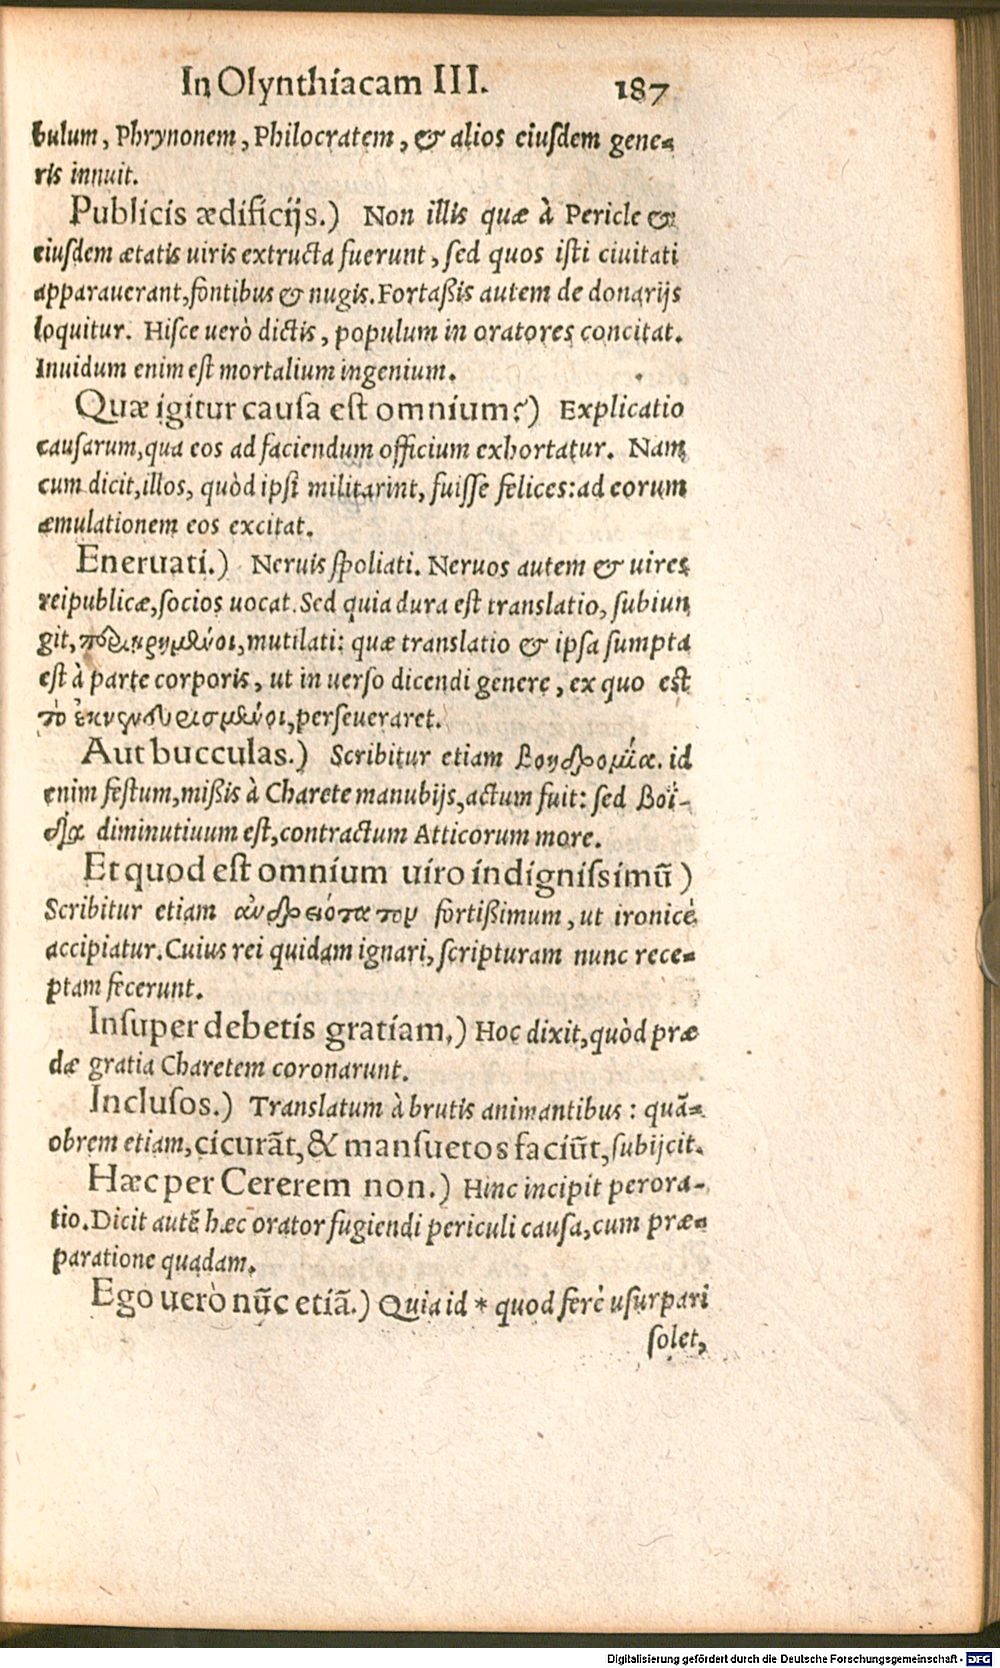 In Olynthiacam III. 187
bulum, Phrynonem, Philocratem, & alios eiusdem gene-
ris innuit.
Publicis ædificijs.) Non illis quæ à Pericle &
eiusdem ætatis uiris extructa fuerunt, sed quos isti ciuitati
apparauerant, fontibus & nugis. Fortaßis autem de donarijs
loquitur. Hisce uerò dictis, populum in oratores concitat.
Inuidum enim est mortalium ingenium.
Quæ igitur causa est omnium?) Explicatio
causarum, qua eos ad faciendum officium exhortatur. Nam
cum dicit, illos, quòd ipsi militarint, fuisse felices: ad eorum
æmulationem eos excitat.
Eneruati.) Neruis spoliati. Neruos autem & uires
reipublicæ, socios uocat. Sed quia dura est translatio, subiun
git, mutilati: quæ translatio & ipsa sumpta
est à parte corporis, ut in uerso dicendi genere, ex quo est
τὸ perseueraret.
Aut bucculas.) Scribitur etiam Βοηδρομία. id
enim festum, mißis à Charete manubijs, actum fuit: sed Βοΐ-
δια diminutiuum est, contractum Atticorum more.
Et quod est omnium uiro indignissimũ)
Scribitur etiam ἀνδρειότατον fortißimum, ut ironicè
accipiatur. Cuius rei quidam ignari, scripturam nunc rece-
ptam fecerunt.
Insuper debetis gratiam.) Hoc dixit, quòd præ
dæ gratia Charetem coronarunt.
Inclusos.) Translatum à brutis animantibus: quã-
obrem etiam, cicurãt, & mansuetos faciũt, subijcit.
Hæc per Cererem non.) Hinc incipit perora-
tio. Dicit autẽ hæc orator fugiendi periculi causa, cum præ-
paratione quadam.
Ego uerò nũc etiã.) Quia id * quod ferè usurpari
solet,
Digitalisierung gefördert durch die Deutsche Forschungsgemeinschaft - DFG